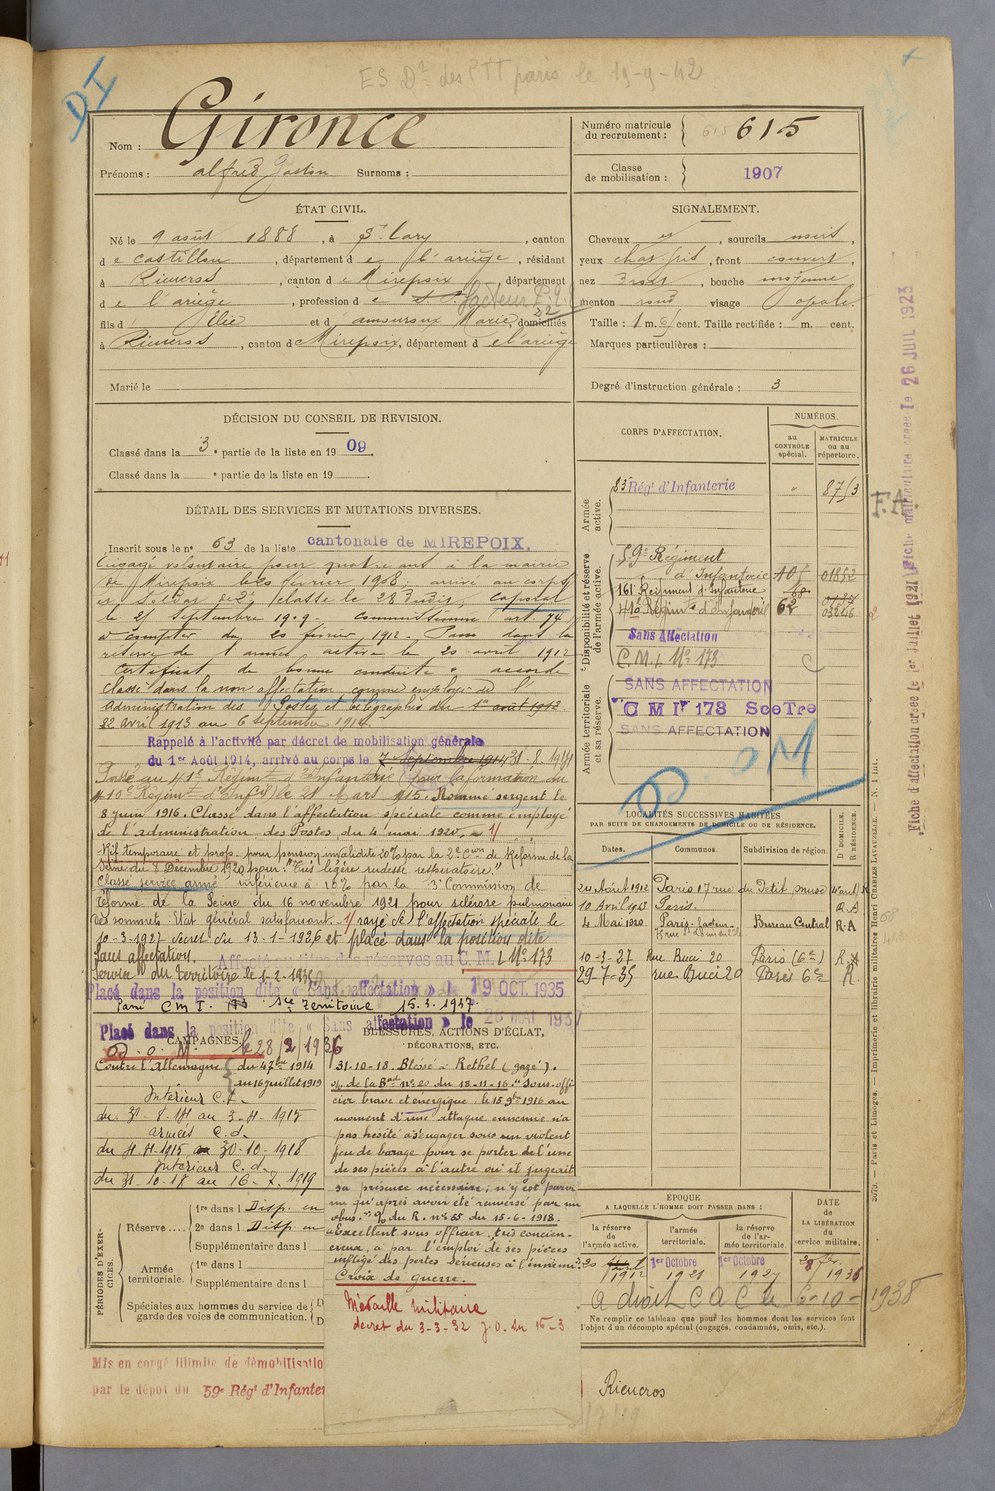 ES Dr des PTT paris le 19-9-42
DI
Nom : Gironce
Prénoms : alfred Gaston Surnoms :
Numéro matricule du recrutement : 615
Classe de mobilisation : 1907
ÉTAT CIVIL.
Né le 9 août 1888, à St Lary, canton
de Castillon, département de l'ariège, résidant
à Rieucros, canton de Mirepoix, département
de l'ariège, profession de facteur
fils d' Élie et d' amouroux Marie, domiciliés
à Rieucros, canton de Mirepoix, département de l'ariège
Marié le
SIGNALEMENT.
Cheveux et, sourcils noirs,
yeux chat. gris, front couvert,
nez droit, bouche moyenne
menton rond visage ovale.
Taille : 1 m. cent. Taille rectifiée : m. cent.
Marques particulières :
Degré d'instruction générale : 3
DÉCISION DU CONSEIL DE REVISION.
Classé dans la 3e partie de la liste en 1909.
Classé dans la e partie de la liste en 19
DÉTAIL DES SERVICES ET MUTATIONS DIVERSES.
Inscrit sous le no 63 de la liste cantonale de MIREPOIX.
Engagé volontaire pour quatre ans à la mairie
de Mirepoix le 25 février 1908; arrivé au corps
et soldat de 2e classe le 28 dudit, caporal
le 25 septembre 1909. commissionné art. 74
à compter du 20 février 1912. Passé dans la
réserve de l'armée active le 20 avril 1912
Certificat de bonne conduite accordé
Classé dans la non affectation comme employé de l'
administration des Postes et télégraphes du 1er août 1912.
22 avril 1913 au 6 septembre 1914.
Rappelé à l'activité par décret de mobilisation générale
du 1er Août 1914, arrivé au corps le 7 Septembre 1914 31-8-1914
Passé au 41e Régiment d'Infanterie (pour la formation du
410e Régiment d'Inf ie) le 21 Mars 1915. Nommé sergent le
8 juin 1916. Classé dans l'affectation spéciale comme employé
de l'administration des Postes, du 4 mai 1920. 1/
Réf temporaire et prop. pour pension invalidité 20% par la 2e Con de Réforme de la
Seine du 8 Décembre 1920 pour : "Très légère rudesse respiratoire."
Classé service armé inférieure à 10% par la 3e Commission de
réforme de la Seine du 16 novembre 1921 pour sclérose pulmonaire
des sommets. Etat général satisfaisant. 1/ rayé de l'affectation spéciale le
10-3-1927 décret du 13-1-1926 et placé dans la position dite
sans affectation. Affecté au titre des réserves au C.M. I No 173
Service du territoire le 1-2-1935
Placé dans la position dite « Sans affectation » le 19 OCT. 1935
Passé C M I. 173 Sce Territoire 15.3.1937
Placé dans la position dite « Sans affectation » le 26 MAI 1937
CORPS D'AFFECTATION.
NUMÉROS.
au CONTROLE spécial.
MATRICULE ou au répertoire.
Armée active.
83e Régt d'Infanterie " 8713
Disponibilité et réserve de l'armée active.
59e Régiment d'Infanterie 405 01852
161e Régiment d'Infanterie
41e Régimt d'Infanterie 62 03246
Sans Affectation
C.M.I. No 173
Armée territoriale et sa réserve.
SANS AFFECTATION
C M Ir 173 Sce Tre
SANS AFFECTATION
D. OM
LOCALITÉS SUCCESSIVES HABITÉES
PAR SUITE DE CHANGEMENTS DE DOMICILE OU DE RÉSIDENCE.
Dates. Communes. Subdivision de région. D. DOMICILE. R. RÉSIDENCE.
20 Août 1912 Paris 17 rue du Petit Musc
10 Avril 1913 Paris. R.A
4 Mai 1920 Paris, facteur Bureau Central R.A
10-3-27 Rue Buci 20 Paris (6e) R.
29-7-35 rue Buci 20 Paris 6e R.
CAMPAGNES.
D. O. M. le 28/2/1936
Contre l'Allemagne du 4 7bre 1914
au 16 juillet 1919
Intérieur C.S.
du 31-8-14 au 3-4-1915
armées C.d.
du 4-4-1915 au 30-10-1918
Intérieur C.d.
du 31-10-18 au 16-7-1919
BLESSURES, ACTIONS D'ÉCLAT, DÉCORATIONS, ETC.
31-10-18. Blessé à Rethel (gazé).
O/. de la Bde no 20 du 18-11-16. "Sous-offi
cier brave et énergique : le 15 9bre 1916 au
moment d'une attaque ennemie n'a
pas hésité à s'engager sous un violent
feu de barage pour se porter de l'une
de ses pièces à l'autre où il jugeait
sa présence nécessaire, n'y est parve
nu qu'après avoir été renversé par un
obus." O/ du R. no 55 du 15-6-1918.
"Excellent sous officier, très conscien-
cieux, a par l'emploi de ses pièces
infligé des pertes sérieuses à l'ennemi".
Croix de guerre.
Médaille militaire
décret du 3-3-32 J.O. du 15-3.
PÉRIODES D'EXERCICES.
Réserve....
1re dans l Disp. en
2e dans l Disp. en
Supplémentaire dans l
Armée territoriale.
1re dans l
Supplémentaire dans l
Spéciales aux hommes du service de
garde des voies de communication.
ÉPOQUE
A LAQUELLE L'HOMME DOIT PASSER DANS :
DATE de LA LIBÉRATION du service militaire.
la réserve de l'armée active.
l'armée territoriale.
la réserve de l'armée territoriale.
1912
1er Octobre 1921
1er Octobre 1927
1936
a droit C A C le 6-10-1938
Ne remplir ce tableau que pour les hommes dont les services font
l'objet d'un décompte spécial (engagés, condamnés, omis, etc.).
Mis en congé illimité de démobilisatio
par le dépôt du 59e Régt d'Infanter
Rieucros
F.A.
Fiche d'affectation créée le 1er Juillet 1921
Fiche matriculaire créée le 26 JUIL 1923
2679. — Paris et Limoges. — Imprimerie et librairie militaires Henri CHARLES-LAVAUZELLE. — N. 1 int.